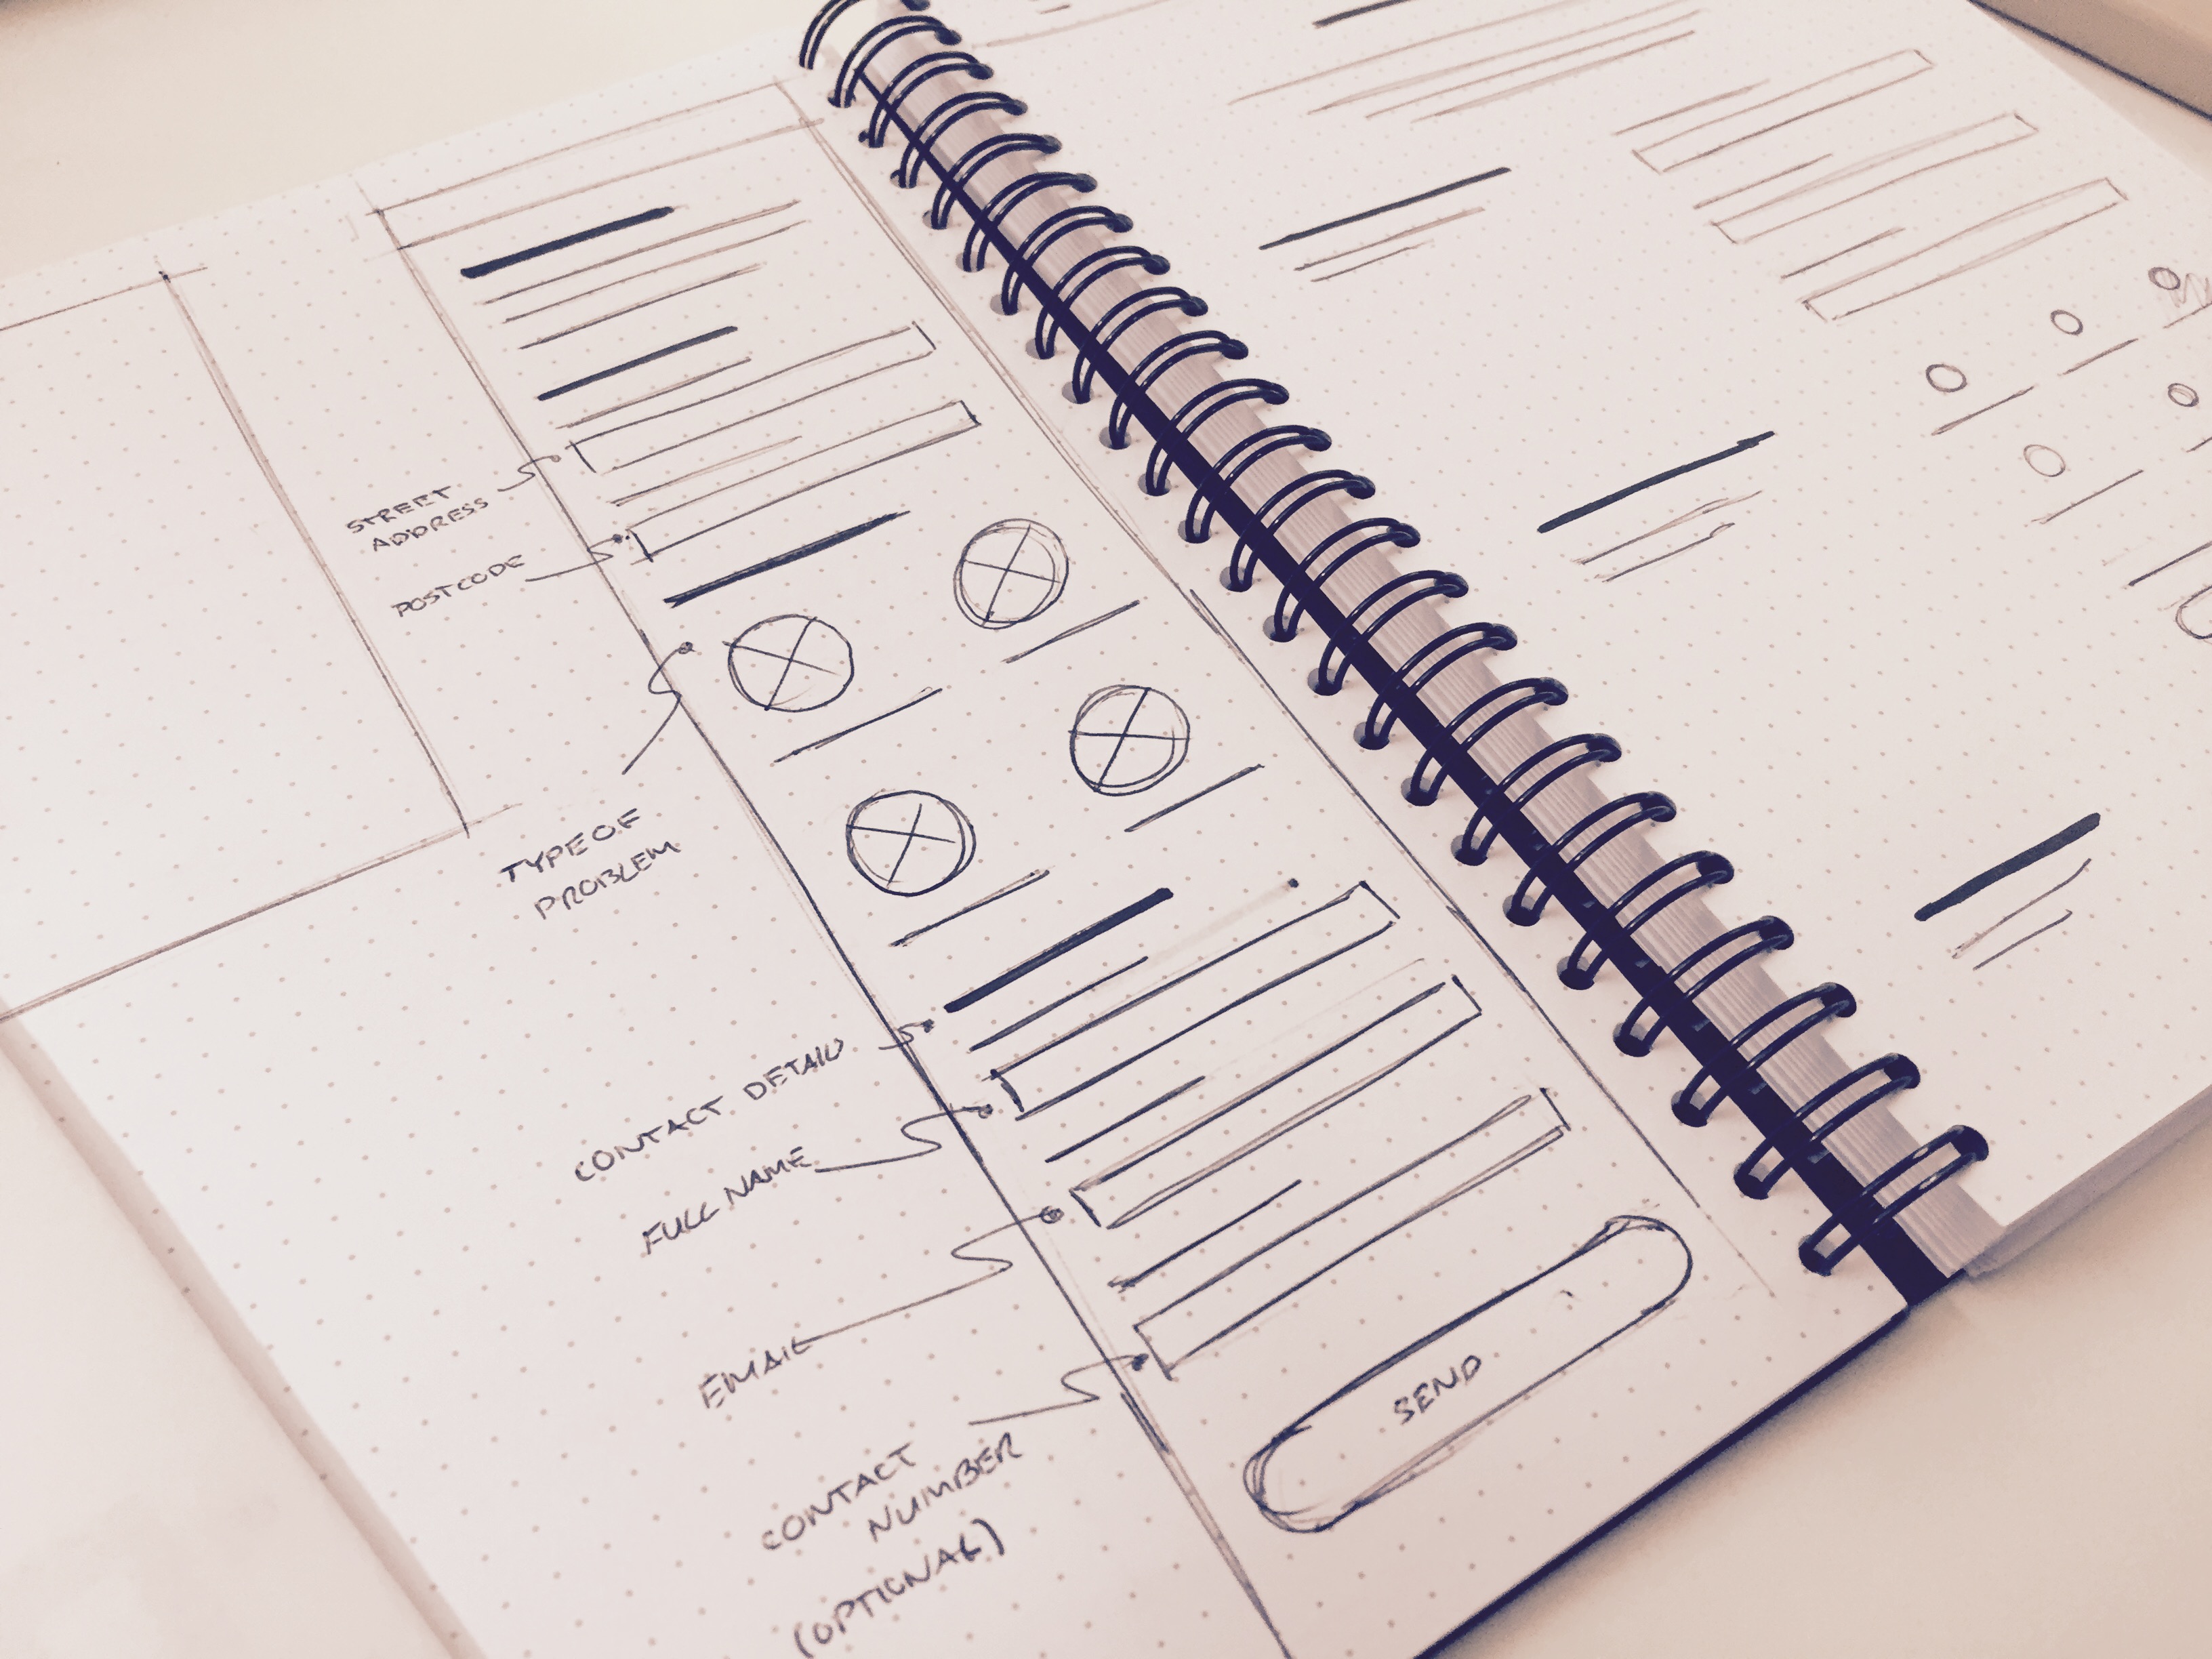 STREET
ADDRESS
POSTCODE
TYPE OF
PROBLEM
CONTACT DETAILS
FULL NAME
EMAIL
CONTACT
NUMBER
(OPTIONAL)
SEND